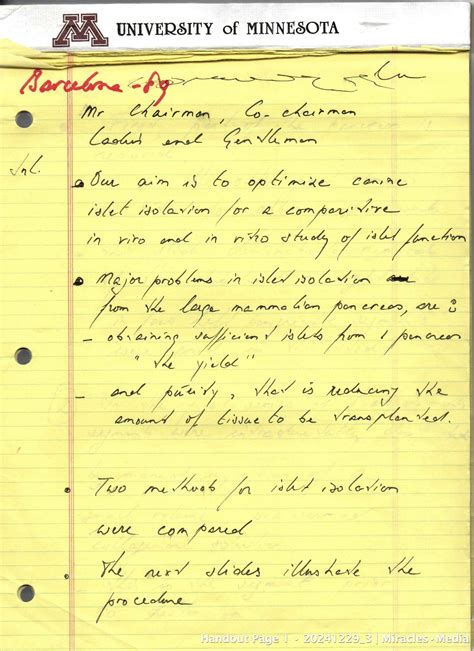 M UNIVERSITY of MINNESOTA
Barcelona - 89
Mr Chairman, Co-chairman
Ladies and Gentleman
Int.
Our aim is to optimize canine
islet isolation for a comparitive
in vivo and in vitro study of islet function
Major problems in islet isolation
from the large mammalian pancreas, are :
- obtaining sufficient islets from 1 pancreas
"the yield"
- and purity, that is reducing the
amount of tissue to be transplanted.
Two methods for islet isolation
were compared
The next slides illustrate the
procedure
Handout Page 1 - 20241229_3 | Miracles · Media